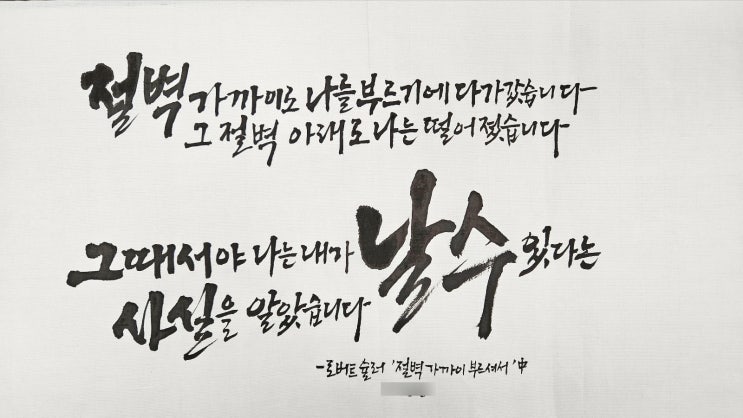 절벽 가까이로 나를 부르기에 다가갔습니다
그 절벽 아래로 나는 떨어졌습니다
그때서야 나는 내가 날 수 있다는
사실을 알았습니다
-로버트 슐러 '절벽 가까이 부르셔서' 中